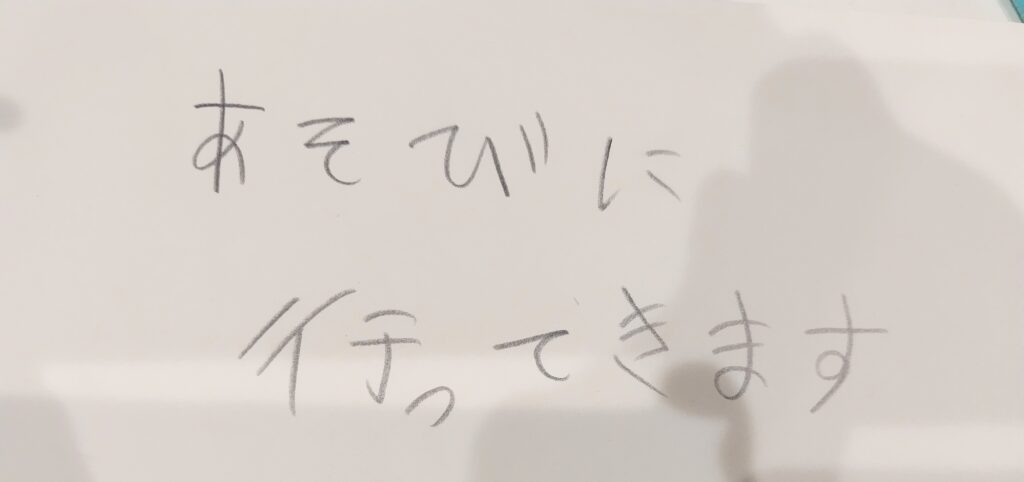 あそびに
行ってきます